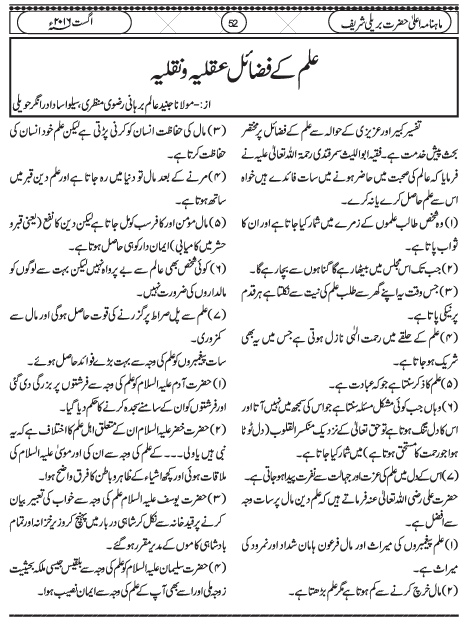 ماہنامہ اعلیٰ حضرت بریلی شریف
52
اگست ۲۰۱۶ء
علم کے فضائل عقلیہ و نقلیہ
از:- مولانا جنید عالم برہانی رضوی منظری بسیلوا ساددار انگر حویلی
تفسیر کبیر اور عزیزی کے حوالہ سے علم کے فضائل پر مختصر
بحث پیش خدمت ہے۔ فقیہ ابواللیث سمرقندی رحمۃ اللہ تعالیٰ علیہ نے
فرمایا کہ عالم کی صحبت میں حاضر ہونے میں سات فائدے ہیں خواہ
اس سے علم حاصل کرے یا نہ کرے۔
(۱) وہ شخص طالب علموں کے زمرے میں شمار کیا جاتا ہے اور ان کا
ثواب پاتا ہے۔
(۲) جب تک اس مجلس میں بیٹھا رہے گا گناہوں سے بچا رہے گا۔
(۳) جس وقت یہ اپنے گھر سے طلب علم کی نیت سے نکلتا ہے ہر قدم
پر نیکی پاتا ہے۔
(۴) علم کے حلقے میں رحمت الٰہی نازل ہوتی ہے جس میں یہ بھی
شریک ہو جاتا ہے۔
(۵) علم کا ذکر سنتا ہے جو کہ عبادت ہے۔
(۶) وہاں جب کوئی مشکل مسئلہ سنتا ہے جو اس کی سمجھ میں نہیں آتا اور
اس کا دل تنگ ہوتا ہے تو حق تعالیٰ کے نزدیک منکسر القلوب (دل ٹوٹا
ہوا جو رحمت کا مستحق ہوتا ہے) میں شمار کیا جاتا ہے۔
(۷) اس کے دل میں علم کی عزت اور جہالت سے نفرت پیدا ہو جاتی ہے۔
حضرت علی رضی اللہ تعالیٰ عنہ فرماتے ہیں کہ علم دین مال پر سات وجہ
سے افضل ہے۔
(۱) علم پیغمبروں کی میراث اور مال فرعون ہامان شداد اور نمرود کی
میراث ہے۔
(۲) مال خرچ کرنے سے کم ہوتا ہے مگر علم بڑھتا ہے۔
(۳) مال کی حفاظت انسان کو کرنی پڑتی ہے لیکن علم خود انسان کی
حفاظت کرتا ہے۔
(۴) مرنے کے بعد مال تو دنیا میں رہ جاتا ہے اور علم دین قبر میں
ساتھ ہوتا ہے۔
(۵) مال مومن اور کافر سب کو مل جاتا ہے لیکن دین کا نفع (یعنی قبر و
حشر میں کامیابی) ایمان دار کو ہی حاصل ہوتا ہے۔
(۶) کوئی شخص بھی عالم سے بے پرواہ نہیں لیکن بہت سے لوگوں کو
مالداروں کی ضرورت نہیں۔
(۷) علم سے پل صراط پر گزرنے کی قوت حاصل ہوگی اور مال سے
کمزوری۔
سات پیغمبروں کو علم کی وجہ سے بہت بڑے فوائد حاصل ہوئے۔
(۱) حضرت آدم علیہ السلام کو علم کی وجہ سے فرشتوں پر بزرگی دی گئی
اور فرشتوں کو ان کے سامنے سجدہ کرنے کا حکم دیا گیا۔
(۲) حضرت خضر علیہ السلام ان کے متعلق اہل علم کا اختلاف ہے کہ یہ
نبی ہیں یا ولی۔۔۔ کے علم کی وجہ سے ان کی اور موسیٰ علیہ السلام کی
ملاقات ہوئی اور کچھ اشیاء کے ظاہر و باطن کا فرق واضح ہوا۔
(۳) حضرت یوسف علیہ السلام علم کی وجہ سے خواب کی تعبیر بیان
کرنے پر قید خانہ سے نکل کر شاہی دربار میں پہنچ کر وزیر خزانہ اور تمام
بادشاہی کاموں کے مدیر مقرر ہو گئے۔
(۴) حضرت سلیمان علیہ السلام کو علم کی وجہ سے بلقیس جیسی ملکہ بحیثیت
زوجہ ملی اور اسے بھی آپ کے علم کی وجہ سے ایمان نصیب ہوا۔